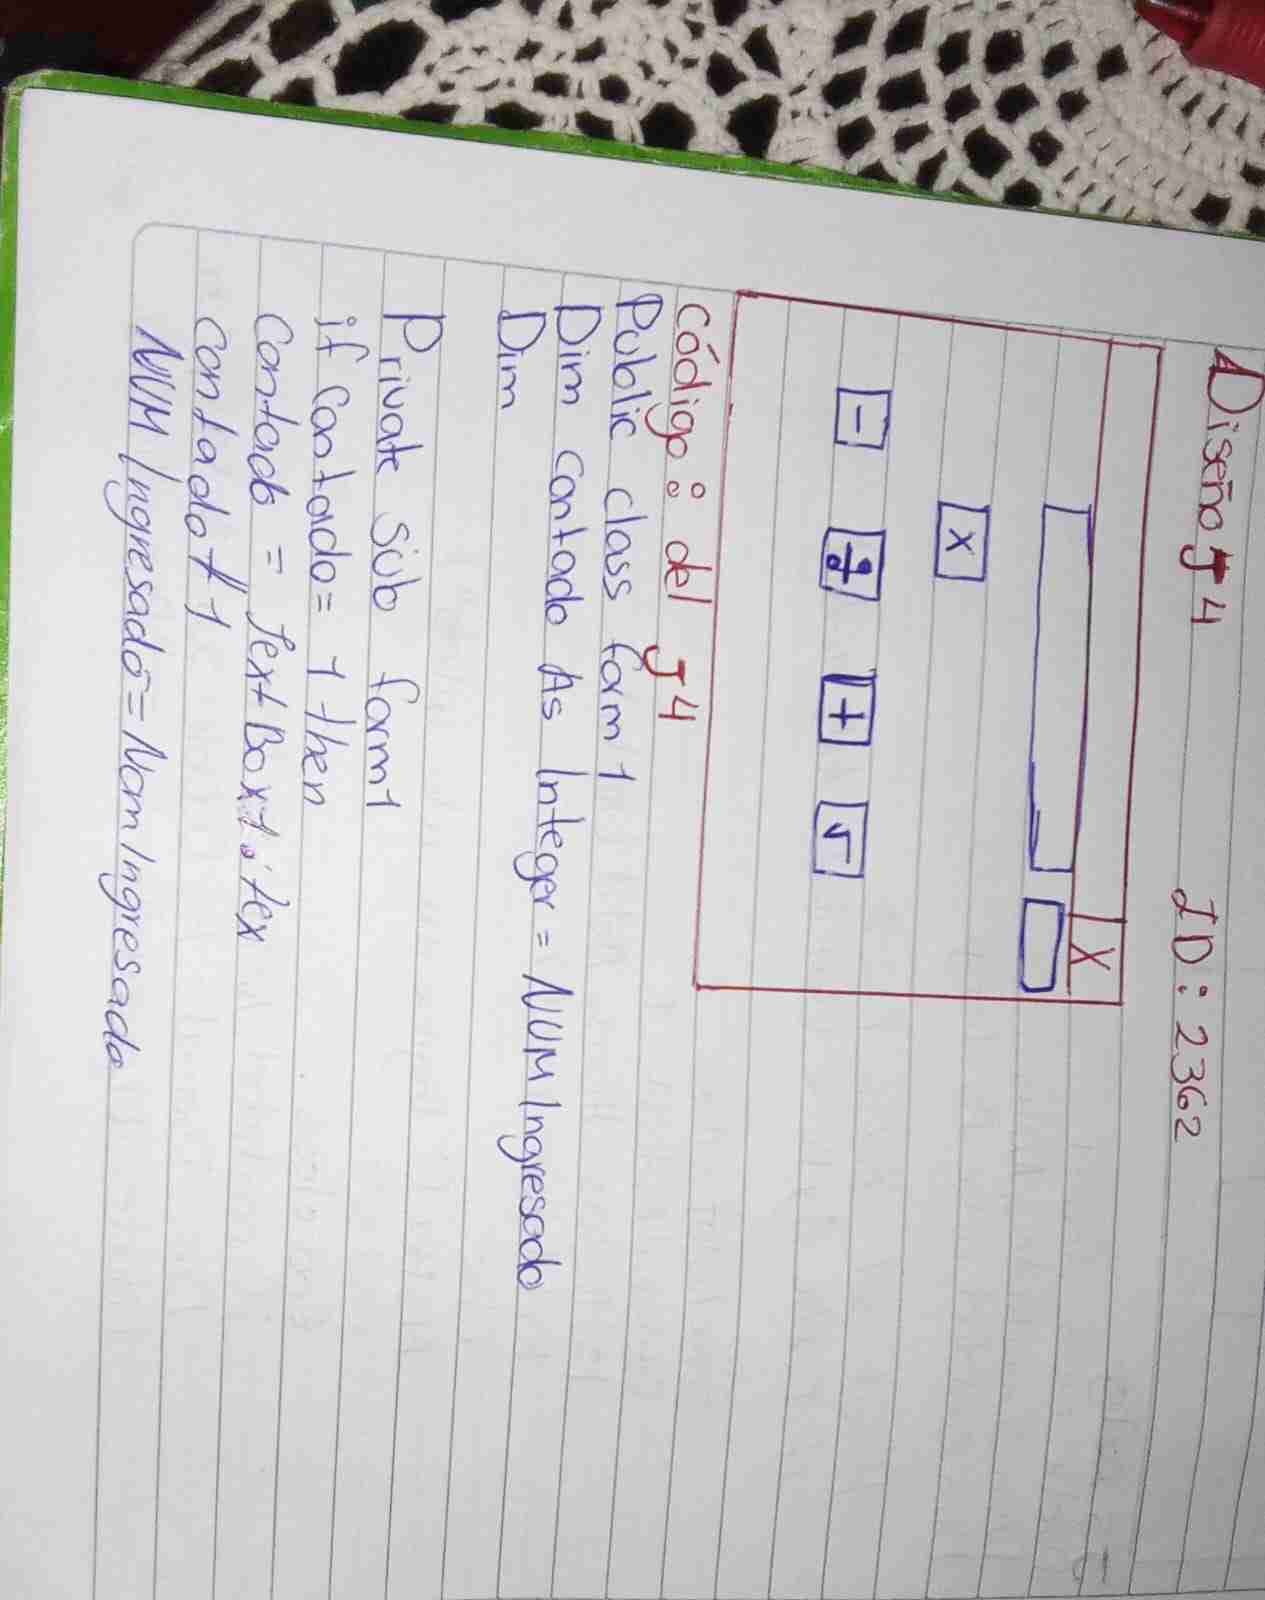 Diseño J4 ID: 2362
X
x
- ÷ + √
código: del J4
Public class form 1
Dim contado As Integer = NUM Ingresado
Dim
Private sub form1
if contado = 1 then
Contado = Text Box 1. tex
contado + 1
NUM Ingresado = Nom Ingresado